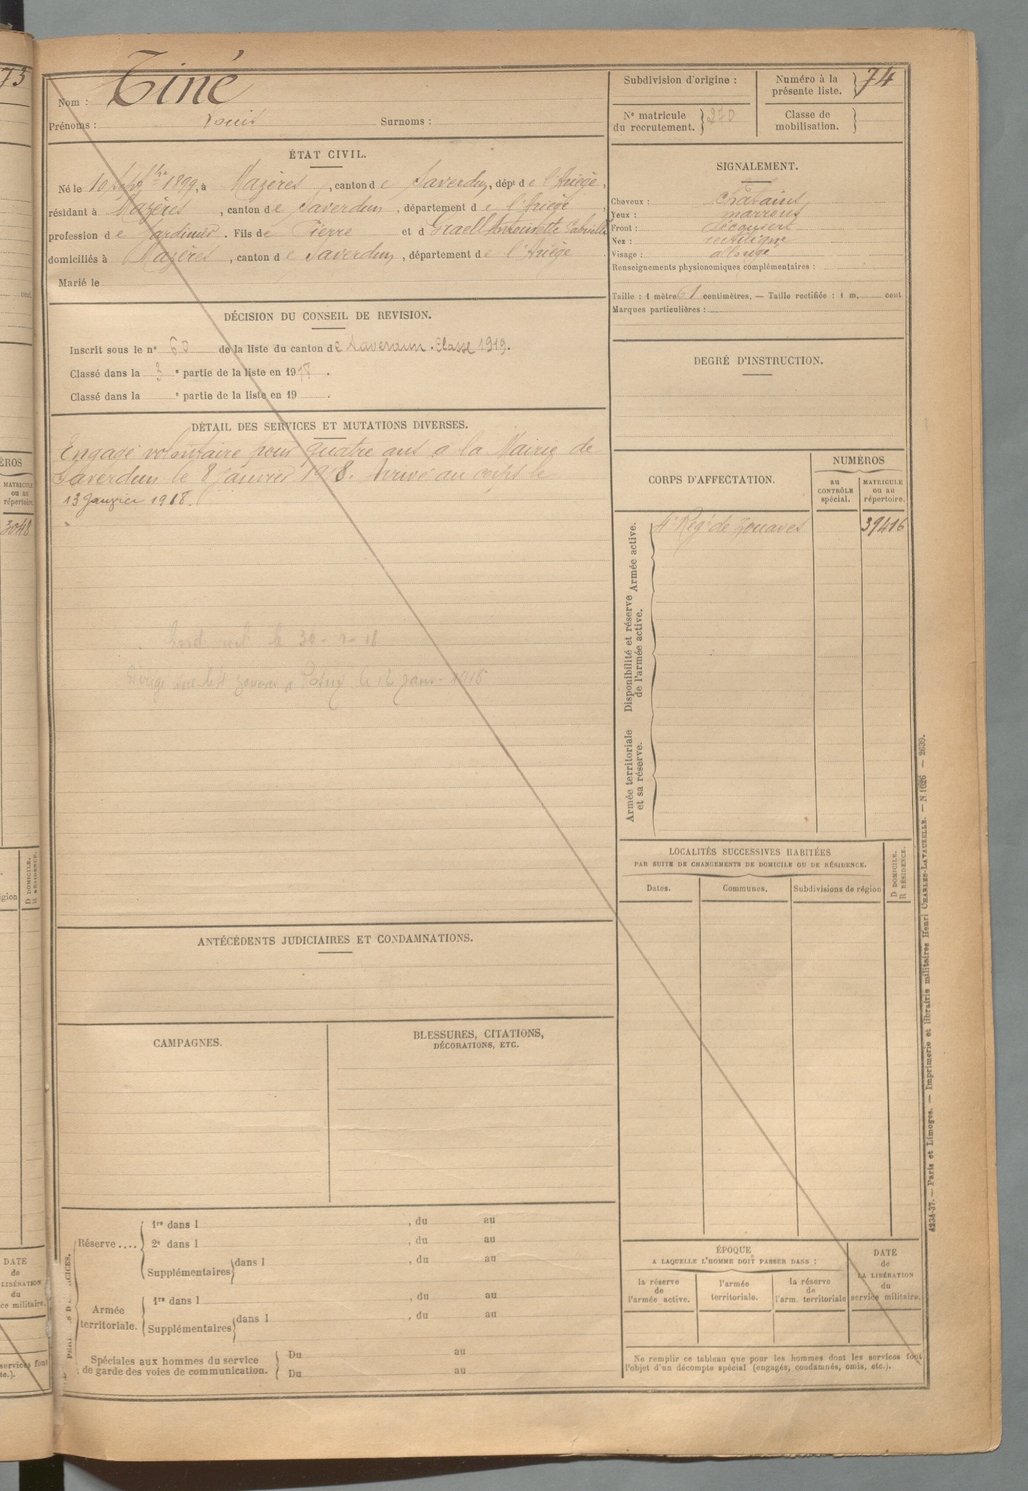 73
Nom : Tiné
Prénoms : Louis Surnoms :
Subdivision d'origine :
Numéro à la présente liste. 74
No matricule du recrutement. 370
Classe de mobilisation.
ÉTAT CIVIL.
Né le 10 1899, à Mazères, canton de Saverdun, dépt de l'Ariège,
résidant à Mazères, canton de Saverdun, département de l'Ariège
profession de Jardinier. Fils de Pierre et d Graell Antoinette Gabrielle
domiciliés à Mazères, canton de Saverdun, département de l'Ariège
Marié le
SIGNALEMENT.
Cheveux : châtains
Yeux : marrons
Front : découvert
Nez : rectiligne
Visage : allongé
Renseignements physionomiques complémentaires :
Taille : 1 mètre 61 centimètres. — Taille rectifiée : 1 m. cent
Marques particulières :
DÉCISION DU CONSEIL DE REVISION.
Inscrit sous le n° de la liste du canton de Saverdun. Classe 1919.
Classé dans la 3e partie de la liste en 19
Classé dans la e partie de la liste en 19 .
DEGRÉ D'INSTRUCTION.
DÉTAIL DES SERVICES ET MUTATIONS DIVERSES.
Engagé volontaire pour quatre ans à la Mairie de
Saverdun le 8 Janvier 1918. Arrivé au corps le
13 Janvier 1918.
CORPS D'AFFECTATION.
NUMÉROS
au CONTRÔLE spécial.
MATRICULE ou au répertoire.
4e Régt de Zouaves 39416
Armée active.
Disponibilité et réserve de l'armée active.
Armée territoriale et sa réserve.
MATRICULE ou au répertoire.
3048
LOCALITÉS SUCCESSIVES HABITÉES
PAR SUITE DE CHANGEMENTS DE DOMICILE OU DE RÉSIDENCE.
Dates. Communes. Subdivisions de région
D DOMICILE.
R RÉSIDENCE.
ANTÉCÉDENTS JUDICIAIRES ET CONDAMNATIONS.
CAMPAGNES.
BLESSURES, CITATIONS,
DÉCORATIONS, ETC.
Réserve....
1re dans l , du au
2e dans l , du au
Supplémentaires dans l , du au
Armée territoriale.
1re dans l , du au
Supplémentaires dans l , du au
Spéciales aux hommes du service
de garde des voies de communication.
Du au
Du au
ÉPOQUE
A LAQUELLE L'HOMME DOIT PASSER DANS :
la réserve de l'armée active.
l'armée territoriale.
la réserve de l'arm. territoriale
DATE de LA LIBÉRATION du service militaire.
Ne remplir ce tableau que pour les hommes dont les services font
l'objet d'un décompte spécial (engagés, condamnés, omis, etc.).
4238-37. — Paris et Limoges. — Imprimerie et librairie militaires Henri CHARLES-LAVAUZELLE. — N 1026 — 2639.